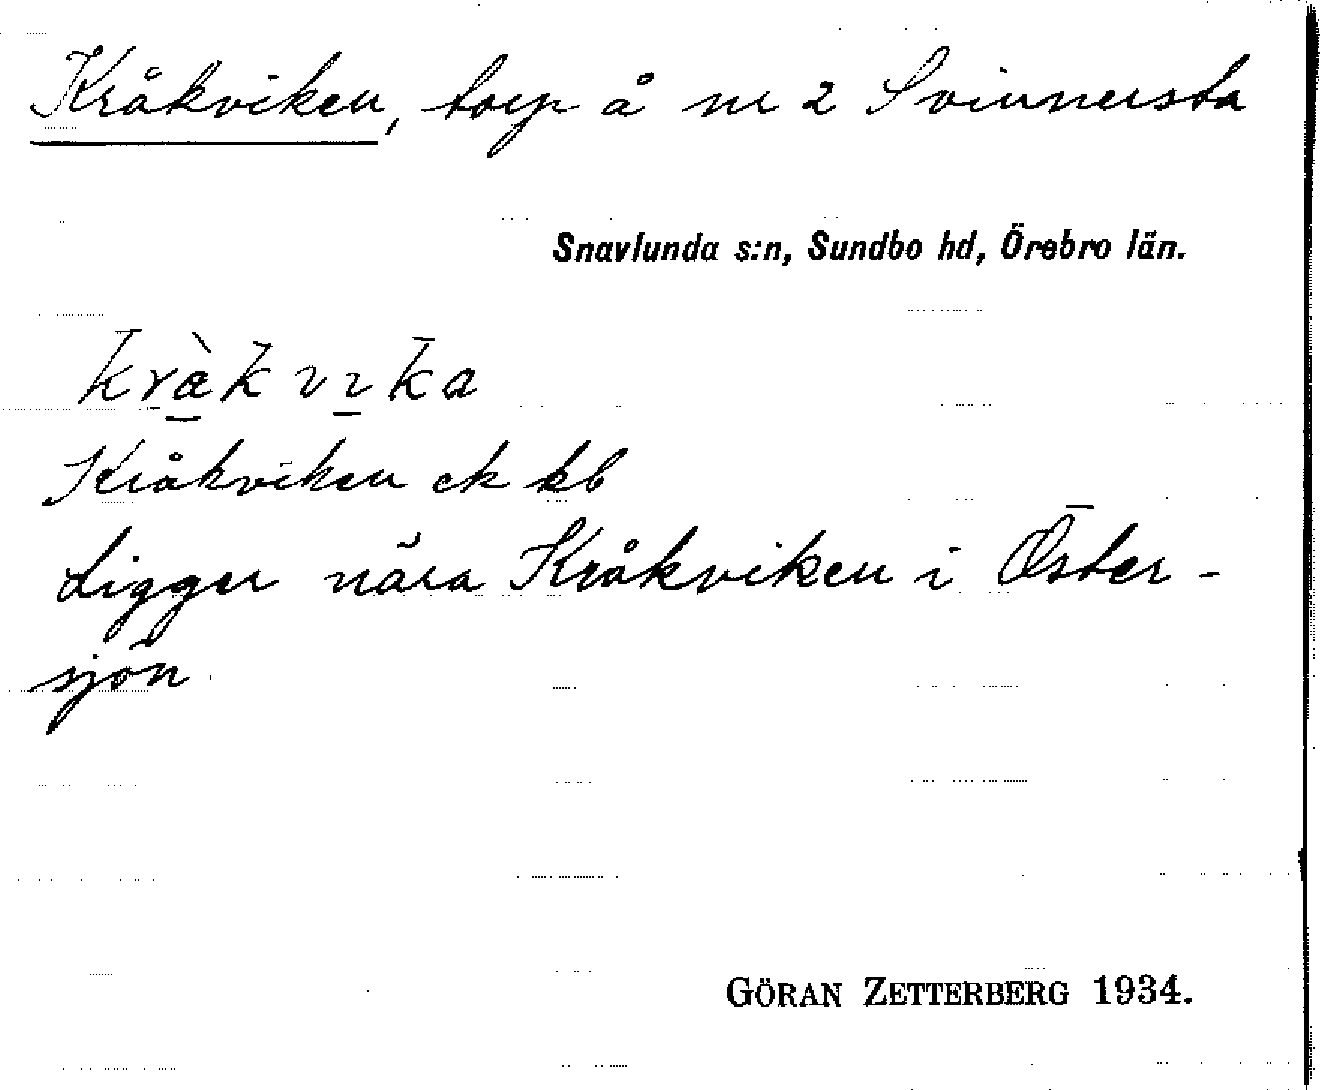 Kråkviken, torp å nr 2 Svinnersta
Snavlunda s:n, Sundbo hd, Örebro län.
kràkvıka
Kråkviken ek kb
Ligger nära Kråkviken i Öster-
sjön
GÖRAN ZETTERBERG 1934.